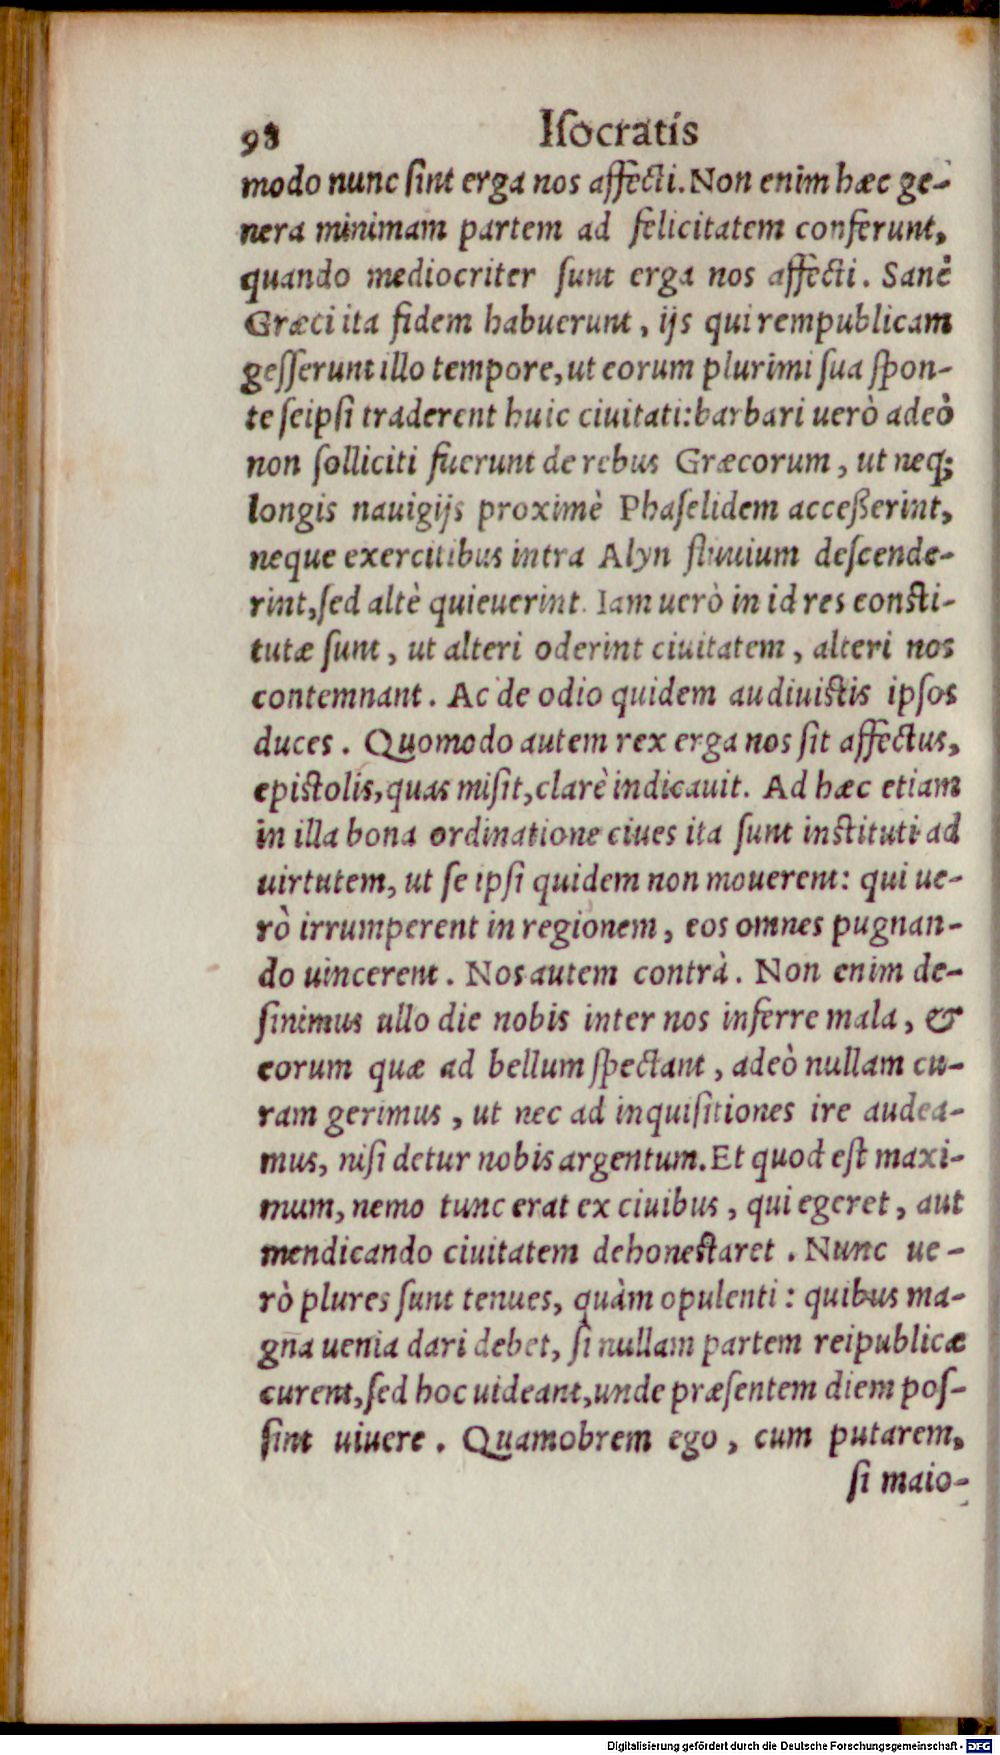 98 Iſocratis
modo nunc ſint erga nos affecti. Non enim hæc ge-
nera minimam partem ad felicitatem conferunt,
quando mediocriter ſunt erga nos affecti. Sanè
Græci ita fidem habuerunt, ijs qui rempublicam
geſſerunt illo tempore, ut eorum plurimi ſua ſpon-
te ſeipſi traderent huic ciuitati: barbari uerò adeò
non ſolliciti fuerunt de rebus Græcorum, ut neq;
longis nauigijs proximè Phaſelidem acceßerint,
neque exercitibus intra Alyn fluuium deſcende-
rint, ſed altè quieuerint. Iam uerò in id res conſti-
tutæ ſunt, ut alteri oderint ciuitatem, alteri nos
contemnant. Ac de odio quidem audiuiſtis ipſos
duces. Quomodo autem rex erga nos ſit affectus,
epiſtolis, quas miſit, clarè indicauit. Ad hæc etiam
in illa bona ordinatione ciues ita ſunt inſtituti ad
uirtutem, ut ſe ipſi quidem non mouerent: qui ue-
rò irrumperent in regionem, eos omnes pugnan-
do uincerent. Nos autem contrà. Non enim de-
ſinimus ullo die nobis inter nos inferre mala, &
eorum quæ ad bellum ſpectant, adeò nullam cu-
ram gerimus, ut nec ad inquiſitiones ire audea-
mus, niſi detur nobis argentum. Et quod eſt maxi-
mum, nemo tunc erat ex ciuibus, qui egeret, aut
mendicando ciuitatem dehoneſtaret. Nunc ue-
rò plures ſunt tenues, quàm opulenti: quibus ma-
gña uenia dari debet, ſi nullam partem reipublicæ
curent, ſed hoc uideant, unde præſentem diem poſ-
ſint uiuere. Quamobrem ego, cum putarem,
ſi maio-
Digitalisierung gefördert durch die Deutsche Forschungsgemeinschaft - DFG